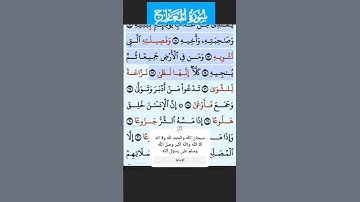 سُورَةُ المَعَارِجِ
وَصَٰحِبَتِهِۦ وَأَخِيهِ ۝ وَفَصِيلَتِهِ ٱلَّتِي
تُـٔۡوِيهِ ۝ وَمَن فِي ٱلۡأَرۡضِ جَمِيعٗا ثُمَّ
يُنجِيهِ ۝ كَلَّآۖ إِنَّهَا لَظَىٰ ۝ نَزَّاعَةٗ
لِّلشَّوَىٰ ۝ تَدۡعُواْ مَنۡ أَدۡبَرَ وَتَوَلَّىٰ ۝
وَجَمَعَ فَأَوۡعَىٰٓ ۝ إِنَّ ٱلۡإِنسَٰنَ خُلِقَ
هَلُوعًا ۝ إِذَا مَسَّهُ ٱلشَّرُّ جَزُوعٗا ۝
وَإِذَا
إِلَّا
سبحان الله والحمد لله ولا اله
الا الله والله اكبر وصل الله
وسلم على رسول الله
ٱلۡمُصَلِّينَ
صَلَاتِهِمۡ